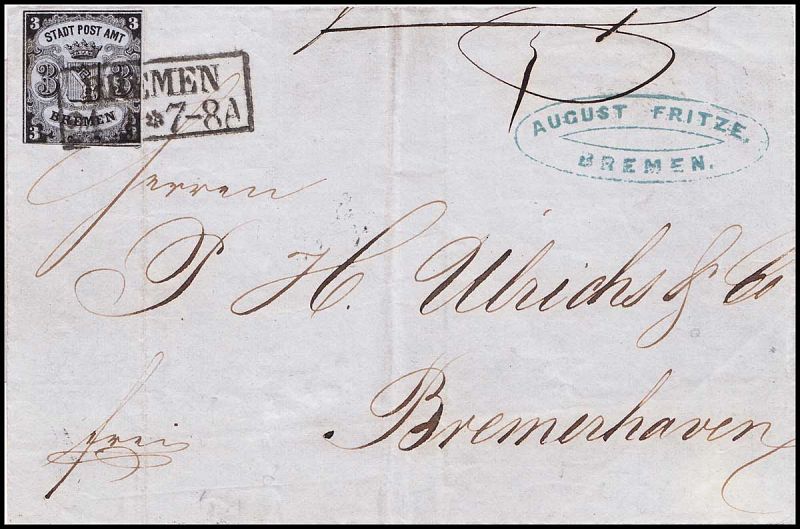 3 3
STADT POST AMT
3 3
BREMEN
3 3
BREMEN
7-8A
AUGUST FRITZE.
BREMEN.
Herren
P. H. Ulrichs & Co
frei
Bremerhaven